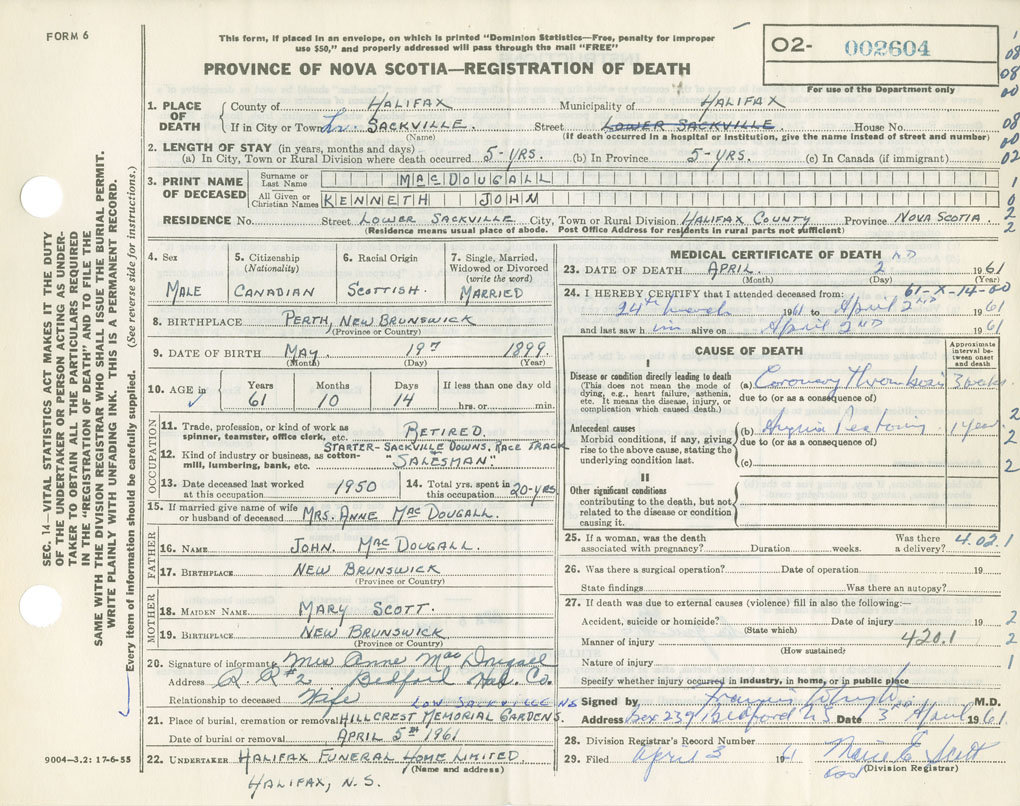 FORM 6
This form, if placed in an envelope, on which is printed "Dominion Statistics—Free, penalty for improper
use $50," and properly addressed will pass through the mail "FREE"
PROVINCE OF NOVA SCOTIA—REGISTRATION OF DEATH
02- 002604
For use of the Department only
SEC. 14—VITAL STATISTICS ACT MAKES IT THE DUTY
OF THE UNDERTAKER OR PERSON ACTING AS UNDER-
TAKER TO OBTAIN ALL THE PARTICULARS REQUIRED
IN THE "REGISTRATION OF DEATH" AND TO FILE THE
SAME WITH THE DIVISION REGISTRAR WHO SHALL ISSUE THE BURIAL PERMIT.
WRITE PLAINLY WITH UNFADING INK. THIS IS A PERMANENT RECORD.
Every item of information should be carefully supplied. (See reverse side for instructions.)
1. PLACE OF DEATH County of HALIFAX Municipality of HALIFAX
If in City or Town Lr. SACKVILLE. Street LOWER SACKVILLE. House No.
(Name) (If death occurred in a hospital or institution, give the name instead of street and number)
2. LENGTH OF STAY (in years, months and days)
(a) In City, Town or Rural Division where death occurred 5-YRS. (b) In Province 5-YRS. (c) In Canada (if immigrant)
3. PRINT NAME OF DECEASED Surname or Last Name MACDOUGALL
All Given or Christian Names KENNETH JOHN
RESIDENCE No. Street LOWER SACKVILLE. City, Town or Rural Division HALIFAX COUNTY Province NOVA SCOTIA.
(Residence means usual place of abode. Post Office Address for residents in rural parts not sufficient)
4. Sex MALE
5. Citizenship (Nationality) CANADIAN
6. Racial Origin SCOTTISH.
7. Single, Married, Widowed or Divorced (write the word) MARRIED
8. BIRTHPLACE PERTH, NEW BRUNSWICK
(Province or Country)
9. DATE OF BIRTH MAY 19TH 1899.
(Month) (Day) (Year)
10. AGE in Years 61 Months 10 Days 14 If less than one day old hrs. or min.
OCCUPATION
11. Trade, profession, or kind of work as spinner, teamster, office clerk, etc. RETIRED.
STARTER-SACKVILLE DOWNS, RACE TRACK
12. Kind of industry or business, as cotton-mill, lumbering, bank, etc. "SALESMAN."
13. Date deceased last worked at this occupation 1950
14. Total yrs. spent in this occupation 20-YRS
15. If married give name of wife or husband of deceased MRS. ANNE MACDOUGALL.
FATHER
16. NAME JOHN. MACDOUGALL.
17. BIRTHPLACE NEW BRUNSWICK
(Province or Country)
MOTHER
18. MAIDEN NAME MARY SCOTT.
19. BIRTHPLACE NEW BRUNSWICK.
(Province or Country)
20. Signature of informant Mrs Anne MacDougall
Address R. R #2 Bedford Hal. Co.
Relationship to deceased Wife
LOW SACKVILLE NS
21. Place of burial, cremation or removal HILLCREST MEMORIAL GARDENS.
Date of burial or removal APRIL 5TH 1961
22. UNDERTAKER HALIFAX FUNERAL HOME LIMITED.
(Name and address)
HALIFAX, N.S.
9004—3.2: 17-6-55
MEDICAL CERTIFICATE OF DEATH
23. DATE OF DEATH APRIL. 2 ND 1961
(Month) (Day) (Year)
61-X-14-00
24. I HEREBY CERTIFY that I attended deceased from:
24th March 1961 to April 2ND 1961
and last saw him alive on April 2ND 1961
CAUSE OF DEATH
Approximate interval between onset and death
I
Disease or condition directly leading to death
(This does not mean the mode of dying, e.g., heart failure, asthenia, etc. It means the disease, injury, or complication which caused death.)
(a) Coronary Thrombosis 3 weeks
due to (or as a consequence of)
Antecedent causes
Morbid conditions, if any, giving rise to the above cause, stating the underlying condition last.
(b) Angina Pectoris 1 year
due to (or as a consequence of)
(c)
II
Other significant conditions
contributing to the death, but not related to the disease or condition causing it.
25. If a woman, was the death associated with pregnancy? Duration weeks. Was there a delivery? 4.02.1
26. Was there a surgical operation? Date of operation 19
State findings Was there an autopsy?
27. If death was due to external causes (violence) fill in also the following:—
Accident, suicide or homicide? Date of injury 19
(State which)
Manner of injury 420.1
(How sustained)
Nature of injury
Specify whether injury occurred in industry, in home, or in public place
Signed by M.D.
Address Box 239 Bedford N.S. Date 3RD April 1961.
28. Division Registrar's Record Number
29. Filed April 3 1961
(Division Registrar)